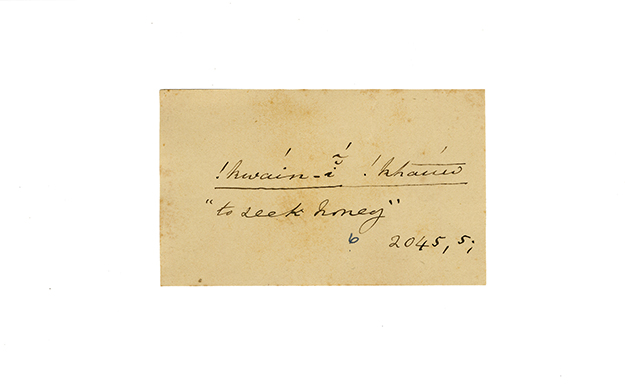 !kwáin-ĩ́ !kháuw
"to seek honey"
6 2045, 5;